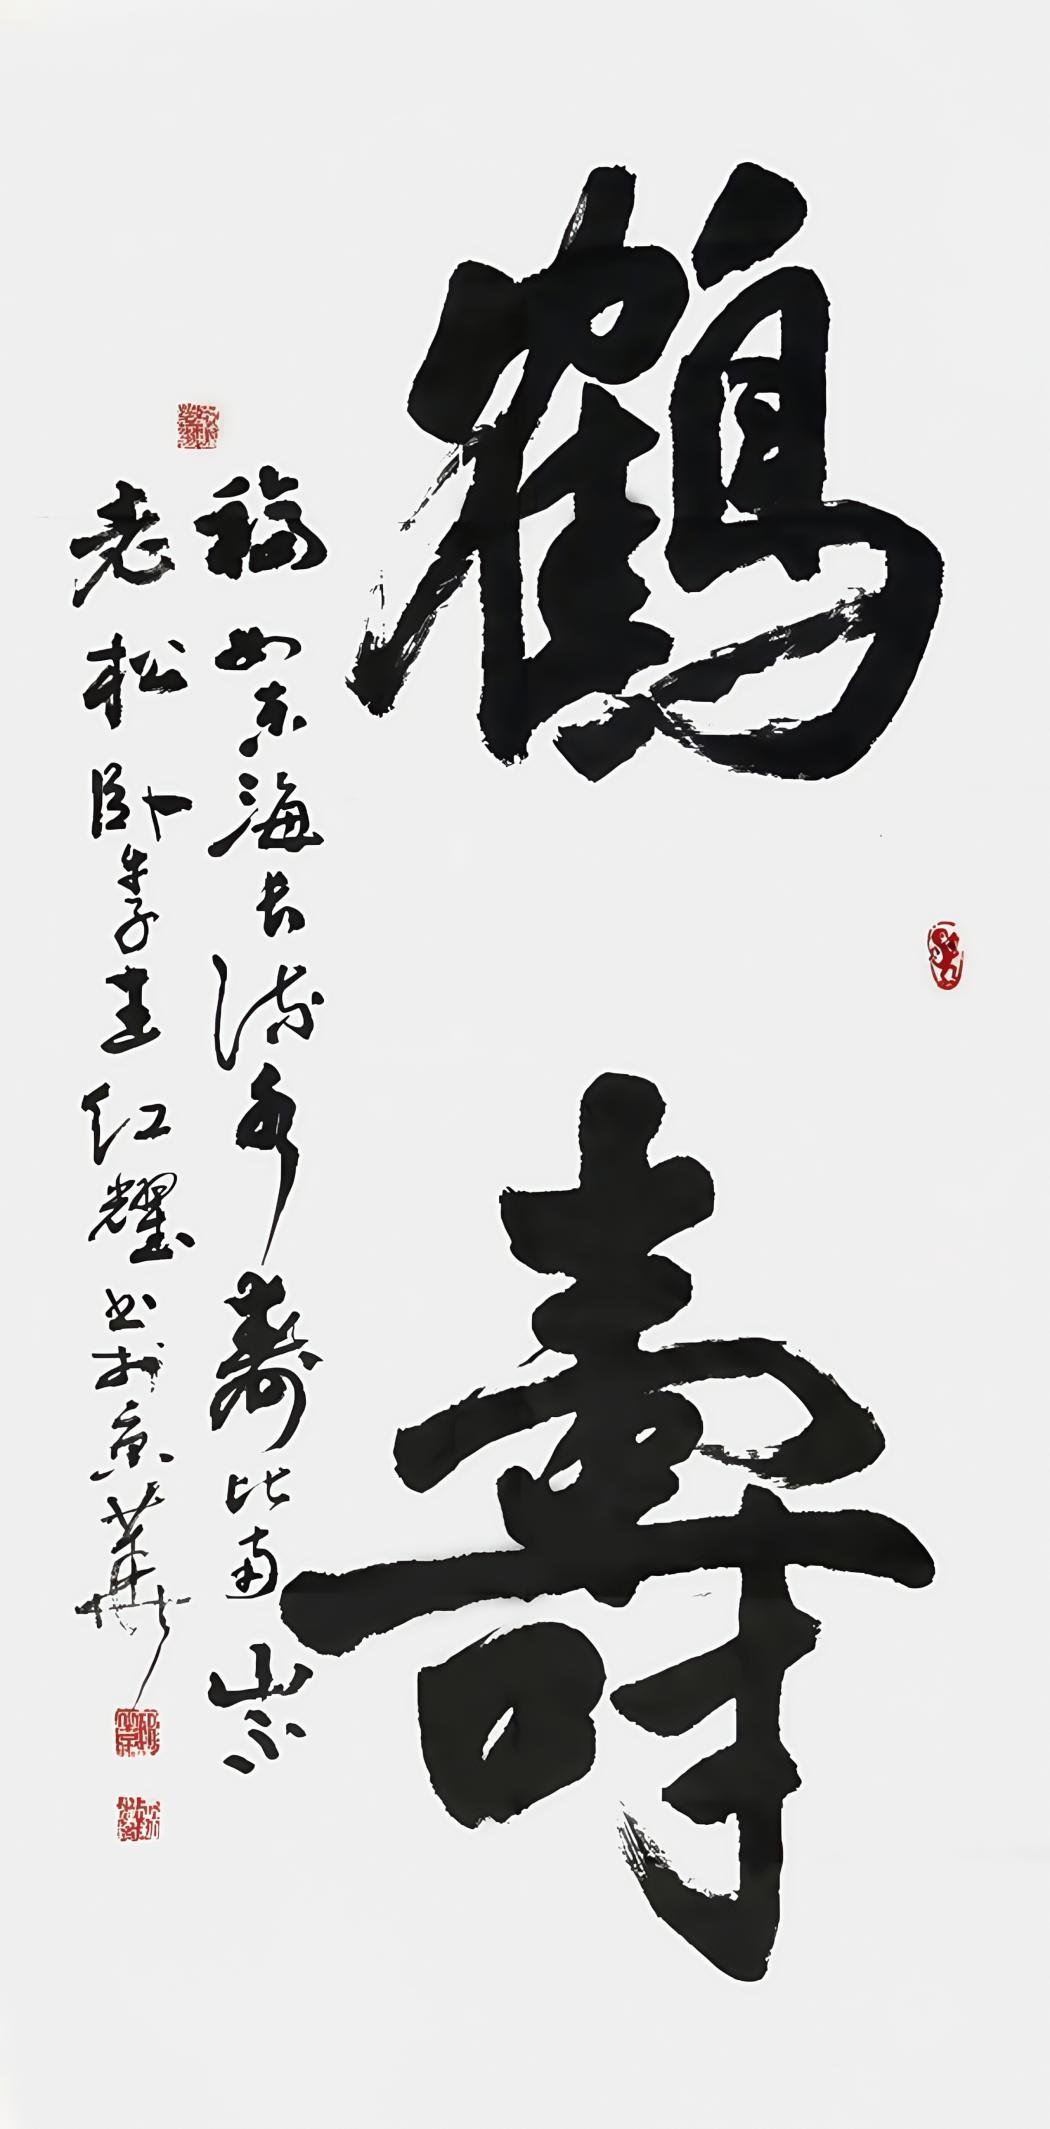 鶴壽
福如东海长流水壽比南山不
老松卧牛子红耀书於京華